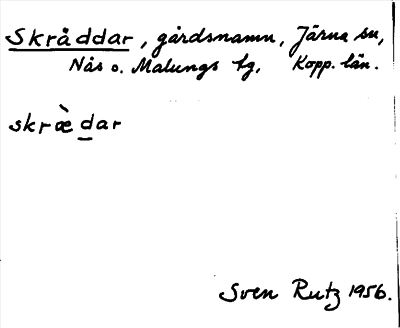 Skräddar, gårdsnamn, Järna sn,
Nås o. Malungs tg, Kopp. län.
skræ̀d̲ar
Sven Rutz 1956.